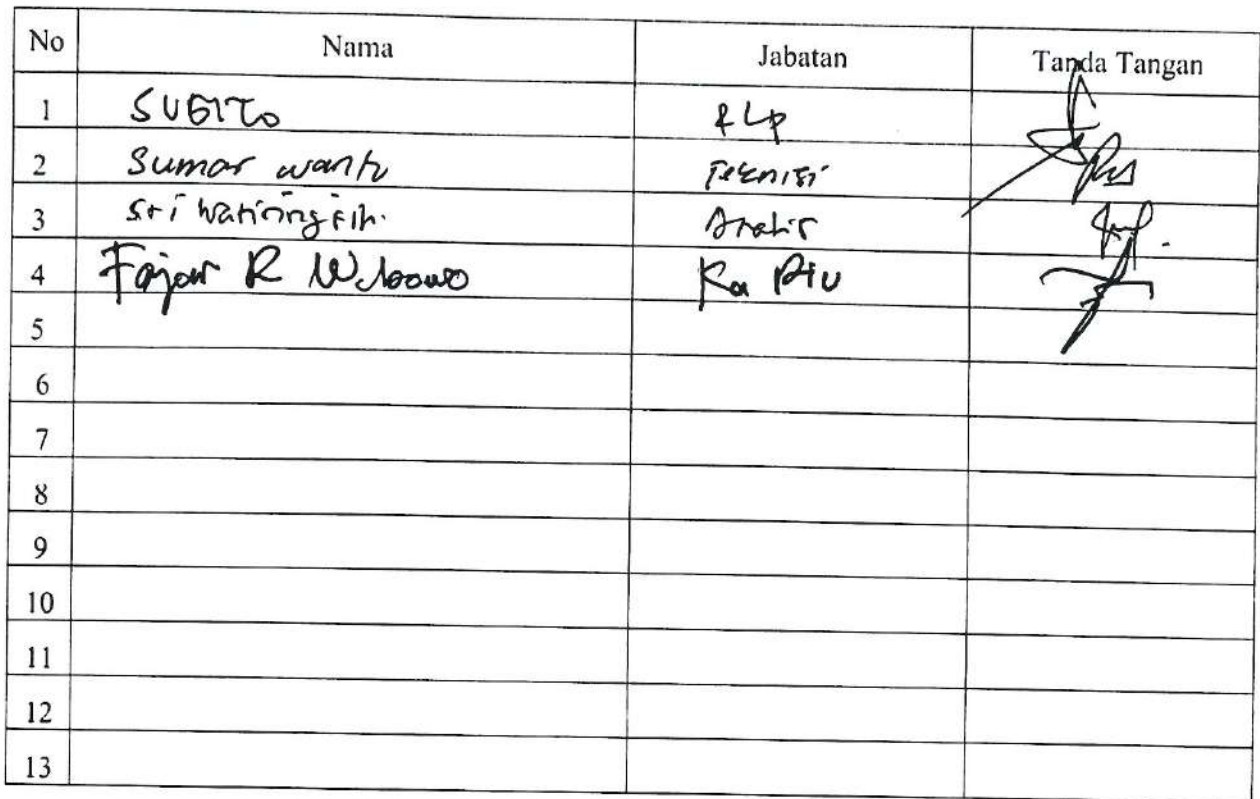 No Nama Jabatan Tanda Tangan
1 SUGITO RLP
2 Sumar wanto Teknisi
3 Sri Wahiningsih. Analis
4 Fajar R Wibowo Ka
5
6
7
8
9
10
11
12
13